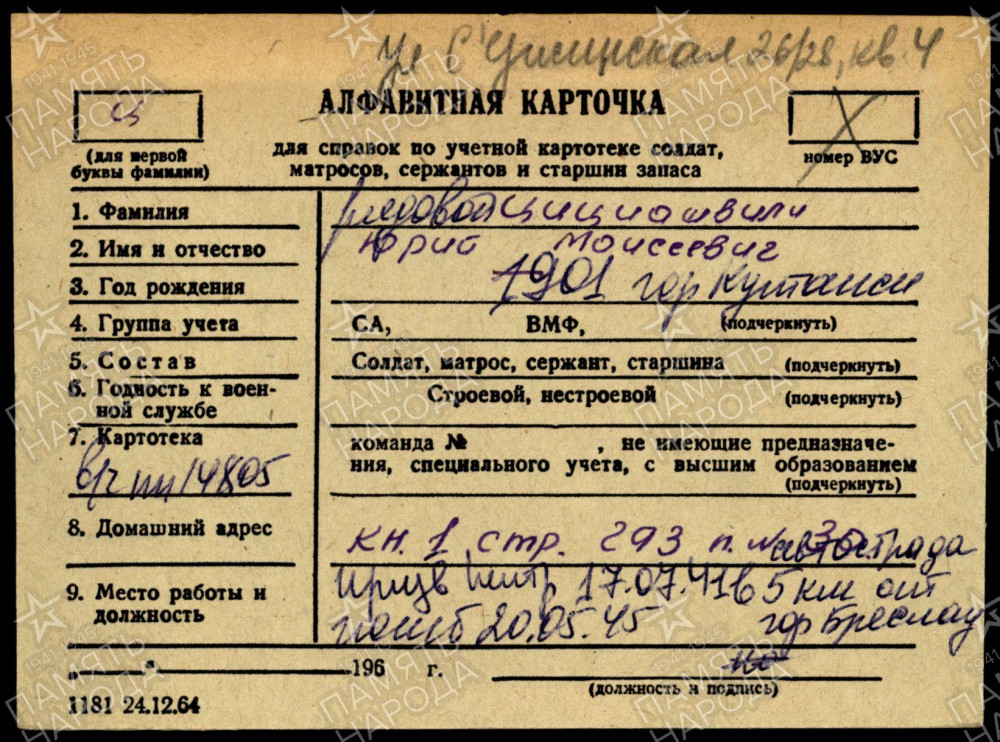 ул С Ушинская 26/28, кв. 4
АЛФАВИТНАЯ КАРТОЧКА
Ц
(для первой буквы фамилии)
для справок по учетной картотеке солдат,
матросов, сержантов и старшин запаса
номер ВУС
1. Фамилия рядовой Цициашвили
2. Имя и отчество Юрий Моисеевич
3. Год рождения 1901 гор Кутаиси
4. Группа учета СА, ВМФ, (подчеркнуть)
5. Состав Солдат, матрос, сержант, старшина (подчеркнуть)
6. Годность к воен-
ной службе Строевой, нестроевой (подчеркнуть)
7. Картотека команда № , не имеющие предназначе-
ния, специального учета, с высшим образованием
(подчеркнуть)
в/ч пп 14805
8. Домашний адрес кн. 1 стр. 293 п. № автострада
9. Место работы и
должность
призв 17.07.41 в 5 км от
погиб 20.05.45 гор Бреслау
„ “ 196 г.
(должность и подпись)
1181 24.12.64
1941-1945
ПАМЯТЬ
НАРОДА